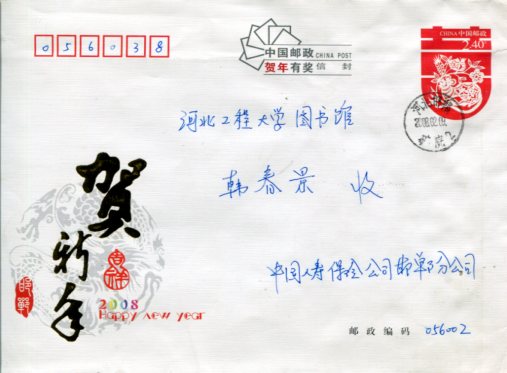 056038
中国邮政 CHINA POST
贺年有奖 信封
CHINA 中国邮政
2.40
河北工程大学图书馆
韩春景 收
贺新年
2008
Happy new year
邯郸
中国人寿保险公司邯郸分公司
邮政编码 056002